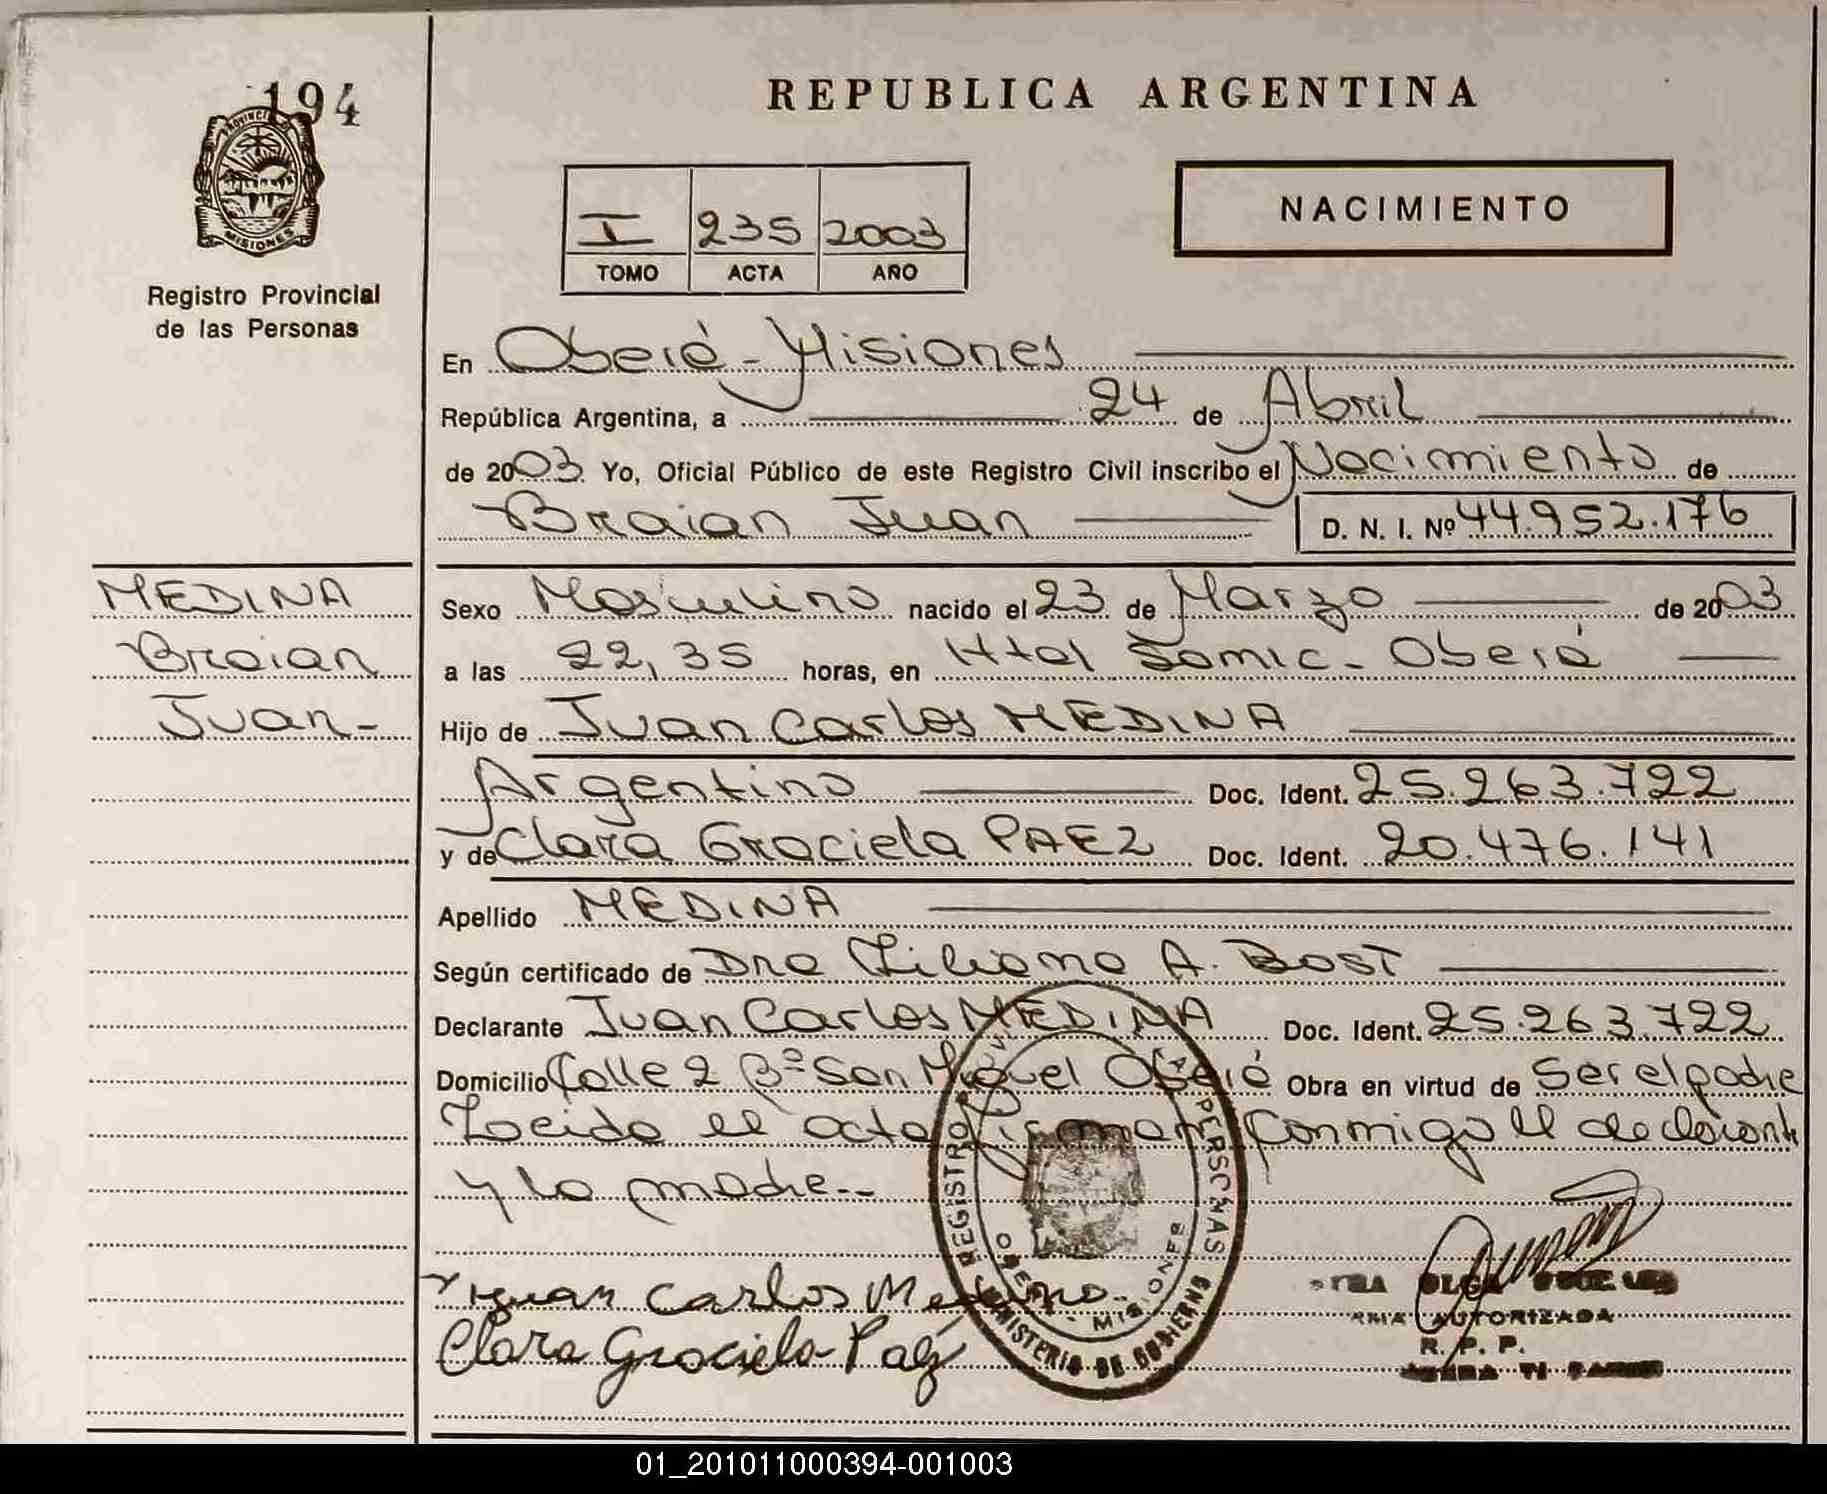 194
PROVINCIA DE
MISIONES
Registro Provincial
de las Personas
REPUBLICA ARGENTINA
NACIMIENTO
I 235 2003
TOMO ACTA AÑO
En Oberá - Misiones
República Argentina, a 24 de Abril
de 2003 Yo, Oficial Público de este Registro Civil inscribo el Nacimiento de
Braian Juan D. N. I. Nº 44.952.176
MEDINA
Braian
Juan-
Sexo Masculino nacido el 23 de Marzo de 2003
a las 22,35 horas, en Htal Samic - Oberá
Hijo de Juan Carlos MEDINA
Argentino Doc. Ident. 25.263.722
y de Clara Graciela PAEZ Doc. Ident. 20.476.141
Apellido MEDINA
Según certificado de Dra Liliana A. BOST
Declarante Juan Carlos MEDINA Doc. Ident. 25.263.722
Domicilio Calle 2 Bº San Miguel Oberá Obra en virtud de Ser el padre
Leida el acta firman conmigo el declarante
y la madre.-
REGISTRO PERSONAS
OBERA - MISIONES
MINISTERIO DE GOBIERNO
Juan Carlos Medina
Clara Graciela Paez
OLGA
AUTORIZADA
R. P. P.
01_201011000394-001003